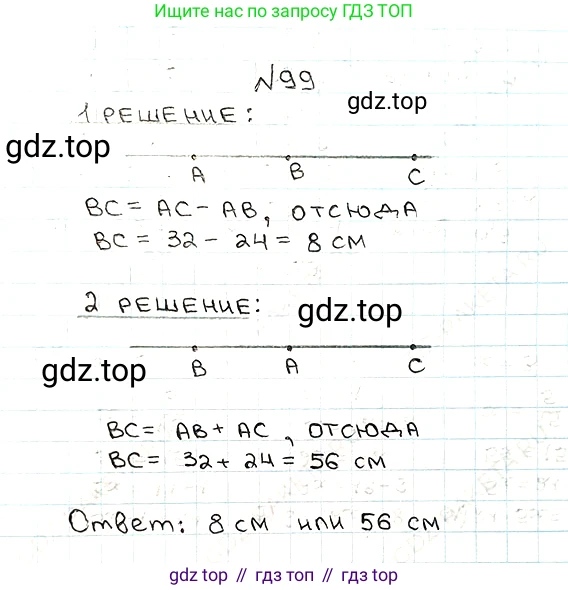 Ищите нас по запросу ГДЗ ТОП
№99
gdz.top
1 РЕШЕНИЕ:
gdz.top
A B C
BC = AC - AB, ОТСЮДА
BC = 32 - 24 = 8 см
2 РЕШЕНИЕ:
gdz.top
B A C
gdz.top
BC = AB + AC, ОТСЮДА
BC = 32 + 24 = 56 см
Ответ: 8 см или 56 см
gdz top // гдз топ // gdz.top